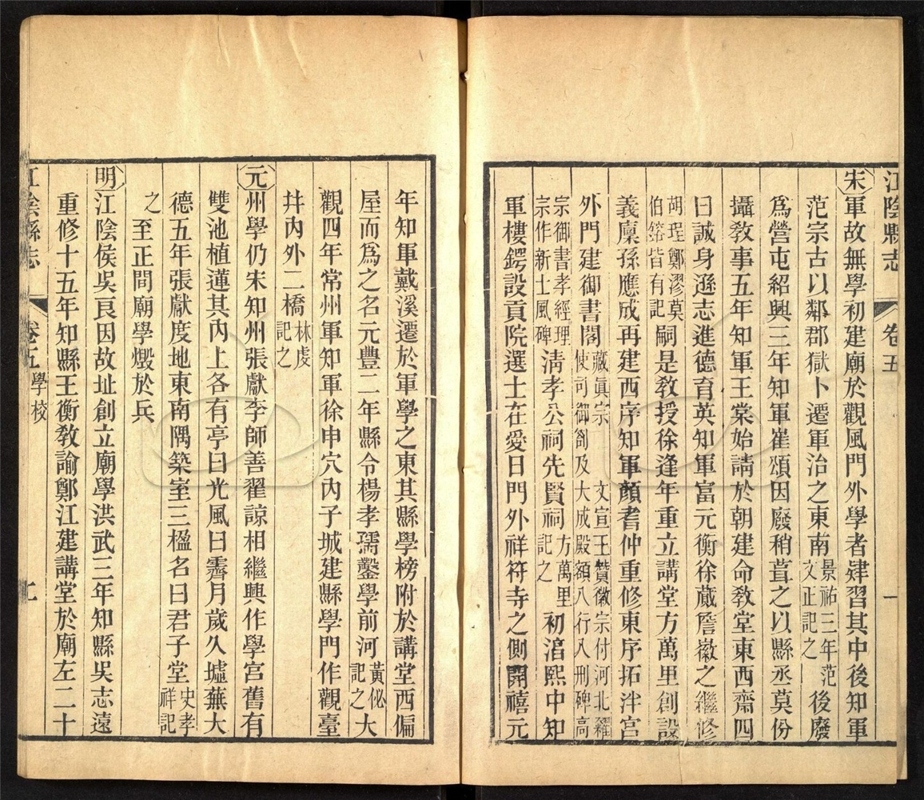 江陰縣志 卷五 一
宋軍故無學初建廟於觀風門外學者肄習其中後知軍
范宗古以鄰郡獄卜遷軍治之東南景祐三年范文正記之後廢
爲營屯紹興三年知軍崔頌因廢稍葺之以縣丞莫份
攝敎事五年知軍王棠始請於朝建命敎堂東西齋四
曰誠身遜志進德育英知軍富元衡徐蕆詹徽之繼修
胡珵鄭謬莫伯鎔皆有記嗣是敎授徐逢年重立講堂方萬里創設
義廩孫應成再建西序知軍顏耆仲重修東序拓泮宮
外門建御書閣藏眞宗文宣王贊徽宗付河北糴使司御劄及大成殿額八行八刑碑高
宗御書孝經理宗作新士風碑淸孝公祠先賢祠方萬里記之初淳熙中知
軍樓鍔設貢院選士在愛日門外祥符寺之側開禧元
年知軍戴溪遷於軍學之東其縣學榜附於講堂西偏
屋而爲之名元豐二年縣令楊孝孺鑿學前河黃伩記之大
觀四年常州軍知軍徐申穴內子城建縣學門作觀臺
井內外二橋林虙記之
元州學仍宋知州張獻李師善翟諒相繼興作學宮舊有
雙池植蓮其內上各有亭曰光風曰霽月歲久墟蕪大
德五年張獻度地東南隅築室三楹名曰君子堂史孝祥記
之至正間廟學燬於兵
明江陰侯吳良因故址創立廟學洪武三年知縣吳志遠
重修十五年知縣王衡敎諭鄭江建講堂於廟左二十
江陰縣志 卷五 學校 七